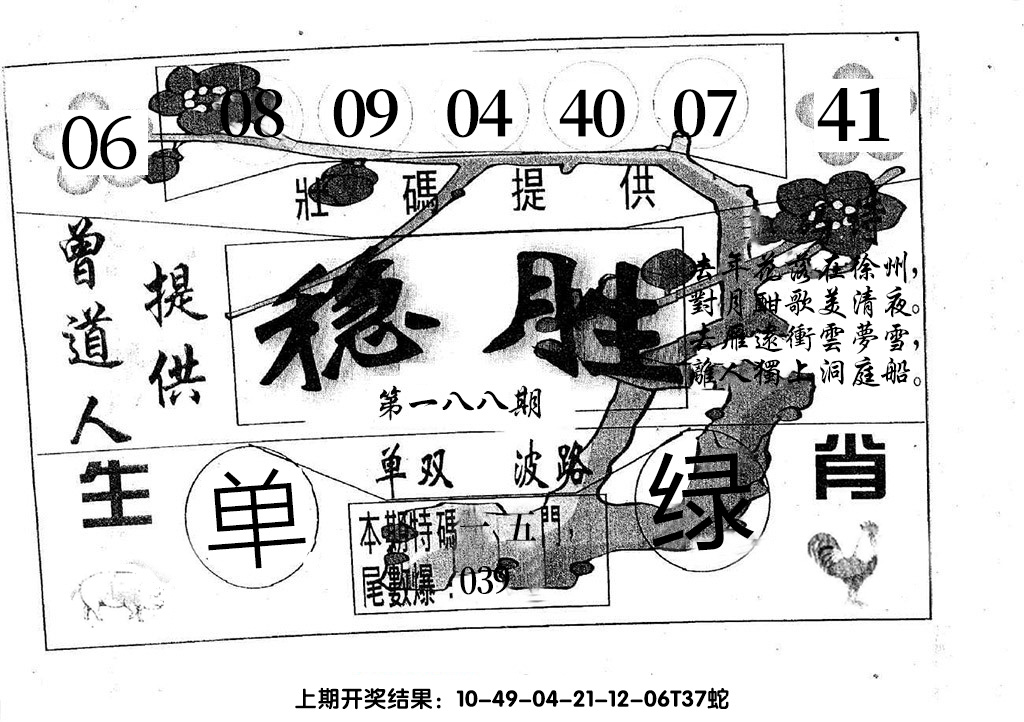 06 08 09 04 40 07 41
壯碼提供
曾道人
提供
稳胜
第一八八期
去年花落在徐州，
對月酣歌美清夜。
去雁遠衝雲夢雪，
離人獨上洞庭船。
单双 波路
生肖
单
绿
本期特碼一、五門，
尾數爆：039
上期开奖结果：10-49-04-21-12-06T37蛇